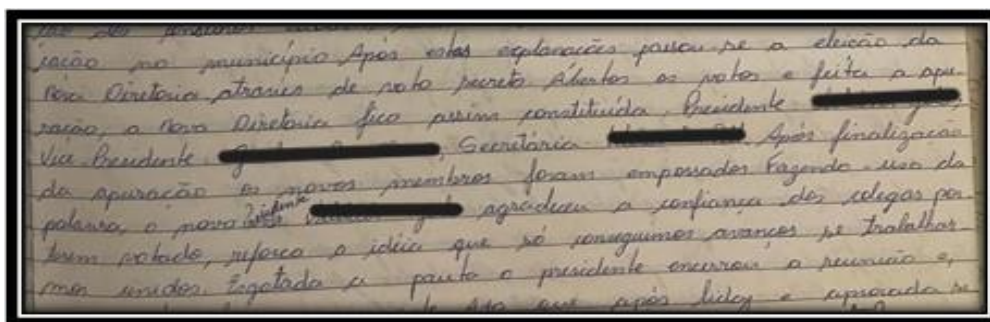 cação no município Após estas explanações passou se a eleição da
nova Diretoria atraves de voto secreto Abertos os votos e feita a apu-
ração, a nova Diretoria fico assim constituída. Presidente
Vice Presidente, Secretária Após finalização
da apuração os novos membros foram empossados Fazendo uso da
palavra, o novo Presidente agradeceu a confiança dos colegas por
terem votado, reforço a idéia que só conseguimos avanços se trabalhar-
mos unidos. Esgotada a pauta o presidente encerrou a reunião e,
que após lida e aprovada se